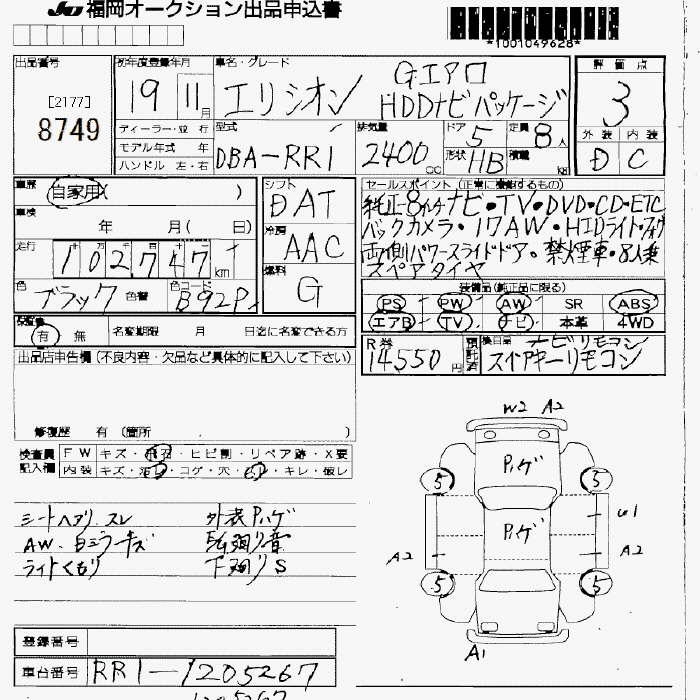 JU福岡オークション出品申込書
*1001049628*
出品番号
[2177]
8749
初年度登録年月
19 11月
車名・グレード
エリシオン
Gエアロ
HDDナビパッケージ
評価点
3
外装 内装
D C
ディーラー・並行
モデル年式 年
ハンドル 左・右
型式
DBA-RR1
排気量
2400cc
ドア 5
形状 HB
定員 8人
積載 kg
車歴
自家用( )
車検
年 月( 日)
走行
102,747km
色
ブラック 色替
色コード
B92P
シフト
DAT
冷房
AAC
燃料
G
セールスポイント (正常に機能するもの)
純正8インチナビ・TV・DVD・CD・ETC
バックカメラ・17AW・HIDライト・フォグ
両側パワースライドドア・禁煙車・8人乗
スペアタイヤ
装備品(純正品に限る)
PS PW AW SR ABS
エアB TV ナビ 本革 4WD
有 無
名変期限 月 日迄に名変できる方
R券
14,550円
預託済
後日品
ナビリモコン
スペアキーリモコン
出品店申告欄(不良内容・欠品など具体的に記入して下さい)
修復歴 有 (箇所 )
検査員
記入欄
FW キズ・飛石・ヒビ割・リペア跡・X要
内装 キズ・汚レ・コゲ・穴・ ・キレ・破レ
シートヘタリ スレ
AW、白ミラーキズ
ライトくもり
外装Pハゲ
下廻りS
W2 A2
Pハゲ
5 5
Pハゲ
W1
A2 A2
5 5
A1
登録番号
車台番号
RR1-1205267
1205267